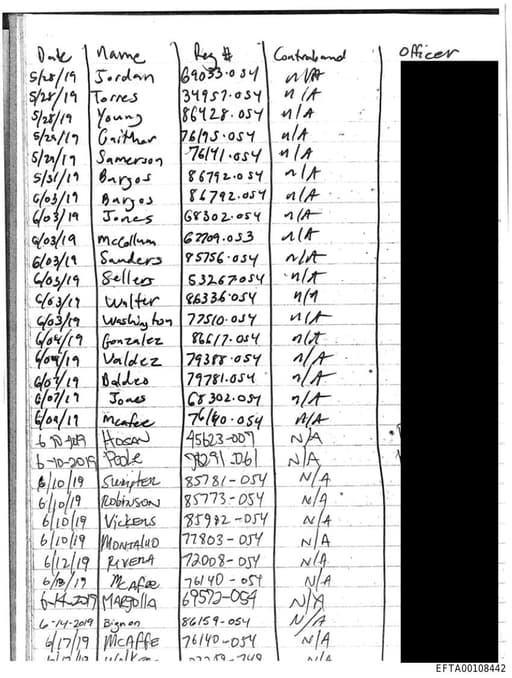 Date Name Reg # Contraband Officer
5/28/19 Jordan 69033.054 n/A
5/28/19 Torres 34957.054 n/A
5/28/19 Young 86428.054 n/A
5/29/19 Gaither 76195.054 n/A
5/29/19 Samerson 76141.054 n/A
5/31/19 Bargos 86792.054 n/A
6/03/19 Bargos 86792.054 n/A
6/03/19 Jones 68302.054 n/A
6/03/19 McCollum 67709.053 n/A
6/03/19 Sanders 85756.054 n/A
6/03/19 Sellers 53267.054 n/A
6/03/19 Walter 86336.054 n/A
6/03/19 Washington 77510.054 n/A
6/04/19 Gonzalez 86617.054 n/A
6/04/19 Valdez 79388.054 n/A
6/07/19 79781.054 n/A
6/07/19 Jones 68302.054 n/A
6/09/19 Mcafee 76140.054 n/A
6-10-2019 HOGAN 45623-007 N/A
6-10-2019 Poole N/A
6/10/19 Sumpter 85781-054 N/A
6/10/19 ROBINSON 85773-054 N/A
6/10/19 VICKERS 85982-054 N/A
6/10/19 MONTALHO 77803-054 N/A
6/12/19 RIVERA 72008-054 N/A
6/13/19 McAfee 76140-054 N/A
6-14-2019 69572-054 N/A
6-14-2019 Bignon 86159-054 N/A
6/17/19 MCAFFE 76140-054 N/A
6/17/19 Walker N/A
EFTA00108442